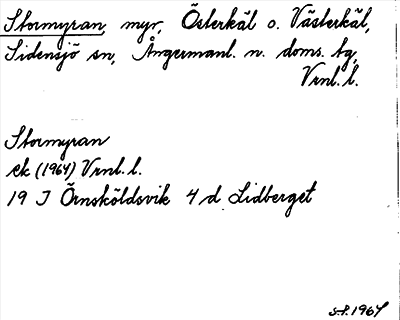 Stormyran, myr, Österkäl o. Västerkäl,
Sidensjö sn, Ångermanl. n. doms. tg,
Vrnl. l.
Stormyran
ek (1964) Vrnl. l.
19 J Örnsköldsvik 4 d Lidberget
S-P. 1967